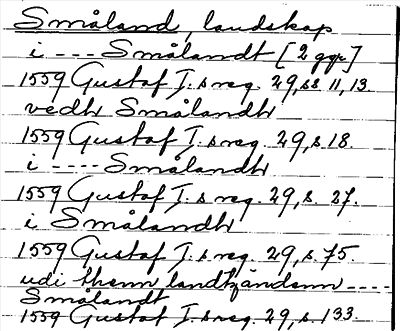 Småland, landskap
i ---- Smålandt [2 ggr]
1559 Gustaf I.s reg. 29, ss 11, 13.
vedh Smålandh
1559 Gustaf I.s reg. 29, s. 18.
i ---- Smålandh
1559 Gustaf I.s reg. 29, s. 27.
i Smålandh
1559 Gustaf I.s reg. 29, s. 75.
udi thenn landtzändenn ----
Smålandt
1559 Gustaf I.s reg. 29, s. 133.